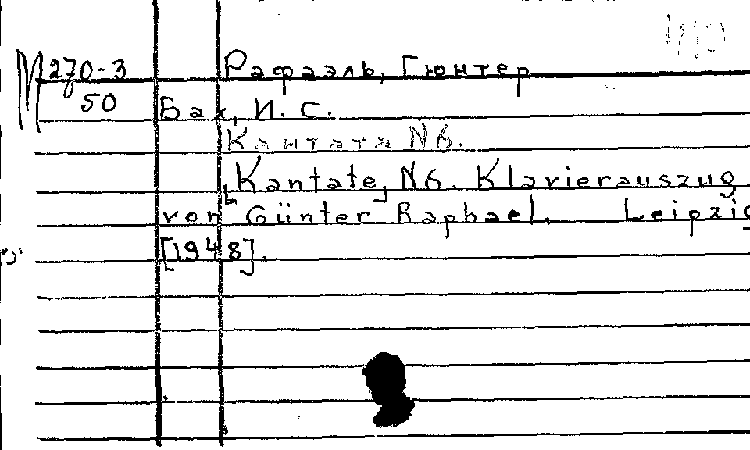 М270-3 Рафаэль, Гюнтер
50 Бах, И. С.
Кантата N6.
[Kantate, N6. Klavierauszug
von Günter Raphael. Leipzig
[1948].